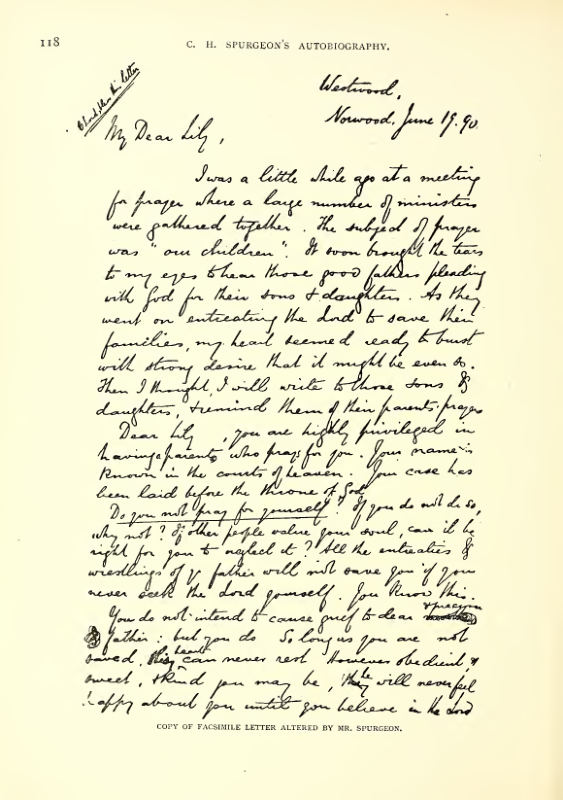 118
C. H. SPURGEON'S AUTOBIOGRAPHY.
this letter
Westwood,
Norwood, June 19. 90.
My Dear Lily,
I was a little while ago at a meeting
for prayer where a large number of ministers
were gathered together. The subject of prayer
was "our children". It soon brought the tears
to my eyes to hear those good fathers pleading
with God for their sons & daughters. As they
went on entreating the Lord to save their
families, my heart seemed ready to burst
with strong desire that it might be even so.
Then I thought, I will write to those sons &
daughters, & remind them of their parents' prayers
Dear Lily, you are highly privileged in
having parents who pray for you. Your name is
known in the courts of heaven. Your case has
been laid before the throne of God.
Do you not pray for yourself? If you do not do so,
why not? If other people value your soul, can it be
right for you to neglect it? All the entreaties &
wrestlings of yr father will not save you if you
never seek the Lord yourself. You know this.
You do not intend to cause grief to dear
father: but you do. So long as you are not
saved, heart can never rest. However obedient, &
sweet, & kind you may be, he will never feel
happy about you until you believe in the Lord
COPY OF FACSIMILE LETTER ALTERED BY MR. SPURGEON.